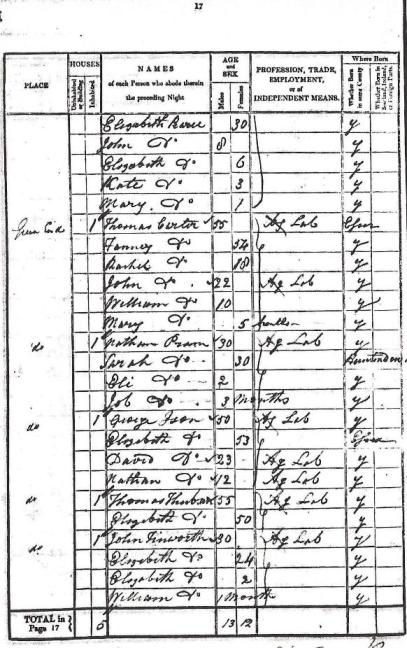 17
PLACE
HOUSES
Uninhabited or Building
Inhabited
NAMES
of each Person who abode therein
the preceding Night
AGE
and
SEX
Males
Females
PROFESSION, TRADE,
EMPLOYMENT,
or of
INDEPENDENT MEANS.
Where Born
Whether Born in same County
Whether Born in Scotland, Ireland, or Foreign Parts.
Elizabeth 30 y
John Do 8 y
Elizabeth Do 6 y
Kate Do 3 y
Mary Do 1 y
Green End 1 Thomas Carter 55 Ag Lab
Fanney Do 54 y
Rachel Do 18 y
John Do 22 Ag Lab y
William Do 10 y
Mary Do 5 y
do 1 Nathan 30 Ag Lab y
Sarah Do 30
Eli Do 2 y
Job Do 3 Months y
do 1 George Ison 50 Ag Lab y
Elizabeth Do 53
David Do 23 Ag Lab y
Nathan Do 12 Ag Lab y
do 1 Thomas 55 Ag Lab y
Elizabeth Do 50 y
do 1 John Tinworth 30 Ag Lab y
Elizabeth Do 24 y
Elizabeth Do 2 y
William Do 1 Month y
TOTAL in
Page 17 } 5 13 12